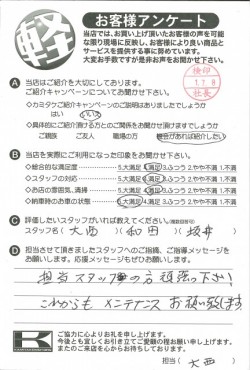 軽
お客様アンケート
当店では、お買い上げ頂いたお客様の声を可能
な限り現場に反映し、お客様により良い商品と
サービスを提供する事に努めています。
大変お手数ですが是非お声をお聞かせ下さい。
検印
11.8
社長
A 当店はご紹介を大切にしております。
ご紹介キャンペーンについてお聞かせ下さい。
◇カミタケご紹介キャンペーンのご説明はありましたでしょうか
はい いいえ
◇具体的にご紹介頂ける方とのご関係をお聞かせ頂けますでしょうか
ご親族 ご友人 職場の方 機会があれば紹介したい
B 当店を実際にご利用になった印象をお聞かせ下さい。
◇総合的な満足度 5.大満足 4.満足 3.ふつう 2.やや不満 1.不満
◇スタッフの対応 5.大満足 4.満足 3.ふつう 2.やや不満 1.不満
◇お店の雰囲気、清掃 5.大満足 4.満足 3.ふつう 2.やや不満 1.不満
◇納車時のお車の状態 5.大満足 4.満足 3.ふつう 2.やや不満 1.不満
C 評価したいスタッフがいれば教えてください。(複数回答可)
スタッフ名( 大西 )( 和田 )( 坂井 )
D 担当させて頂きましたスタッフへのご指摘、ご指導メッセージを
お願いします。応援メッセージもぜひお聞かせ下さい。
担当スタッフの方頑張って下さい
これからもメンテナンスお願い致します
K
ご協力に心よりお礼を申し上げます。
今後とも宜しくお引き立てご愛顧の程お願い申し上げます。
またのご来店を心からお待ちしております。
担当( 大西 )